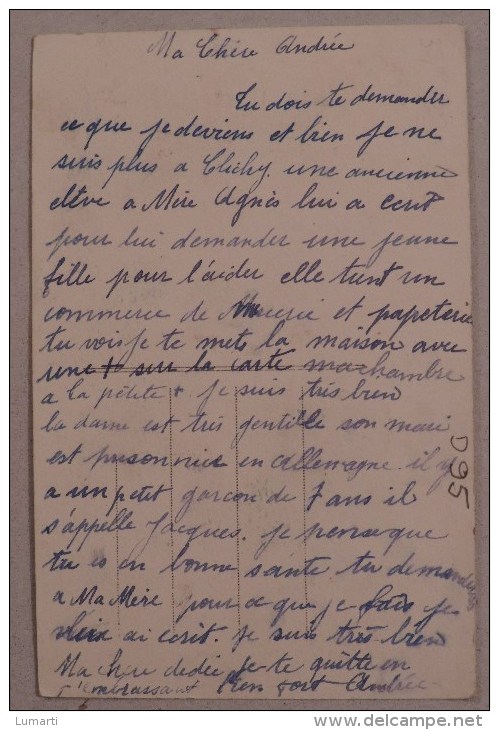 Ma Chère Andrée
Tu dois te demander
ce que je deviens et bien je ne
suis plus a Clichy. une ancienne
elève a Mère Agnès lui a ecrit
pour lui demander une jeune
fille pour l'aider elle tient un
commerce de et papeterie
tu vois je te mets la maison avec
une + sur la carte ma chambre
a la petite + je suis très bien
la dame est très gentille son mari
est prisonnier en Allemagne. il y
a un petit garcon de 7 ans il
s'appelle Jacques. je pense que
tu es en bonne sante tu demanderas
a Ma Mère pour ce que je fais je
lui ai ecrit. Je suis très bien
Ma chère dedée je te quitte en
t'embrassant bien fort Andrée
D95
Lumarti
www.delcampe.net